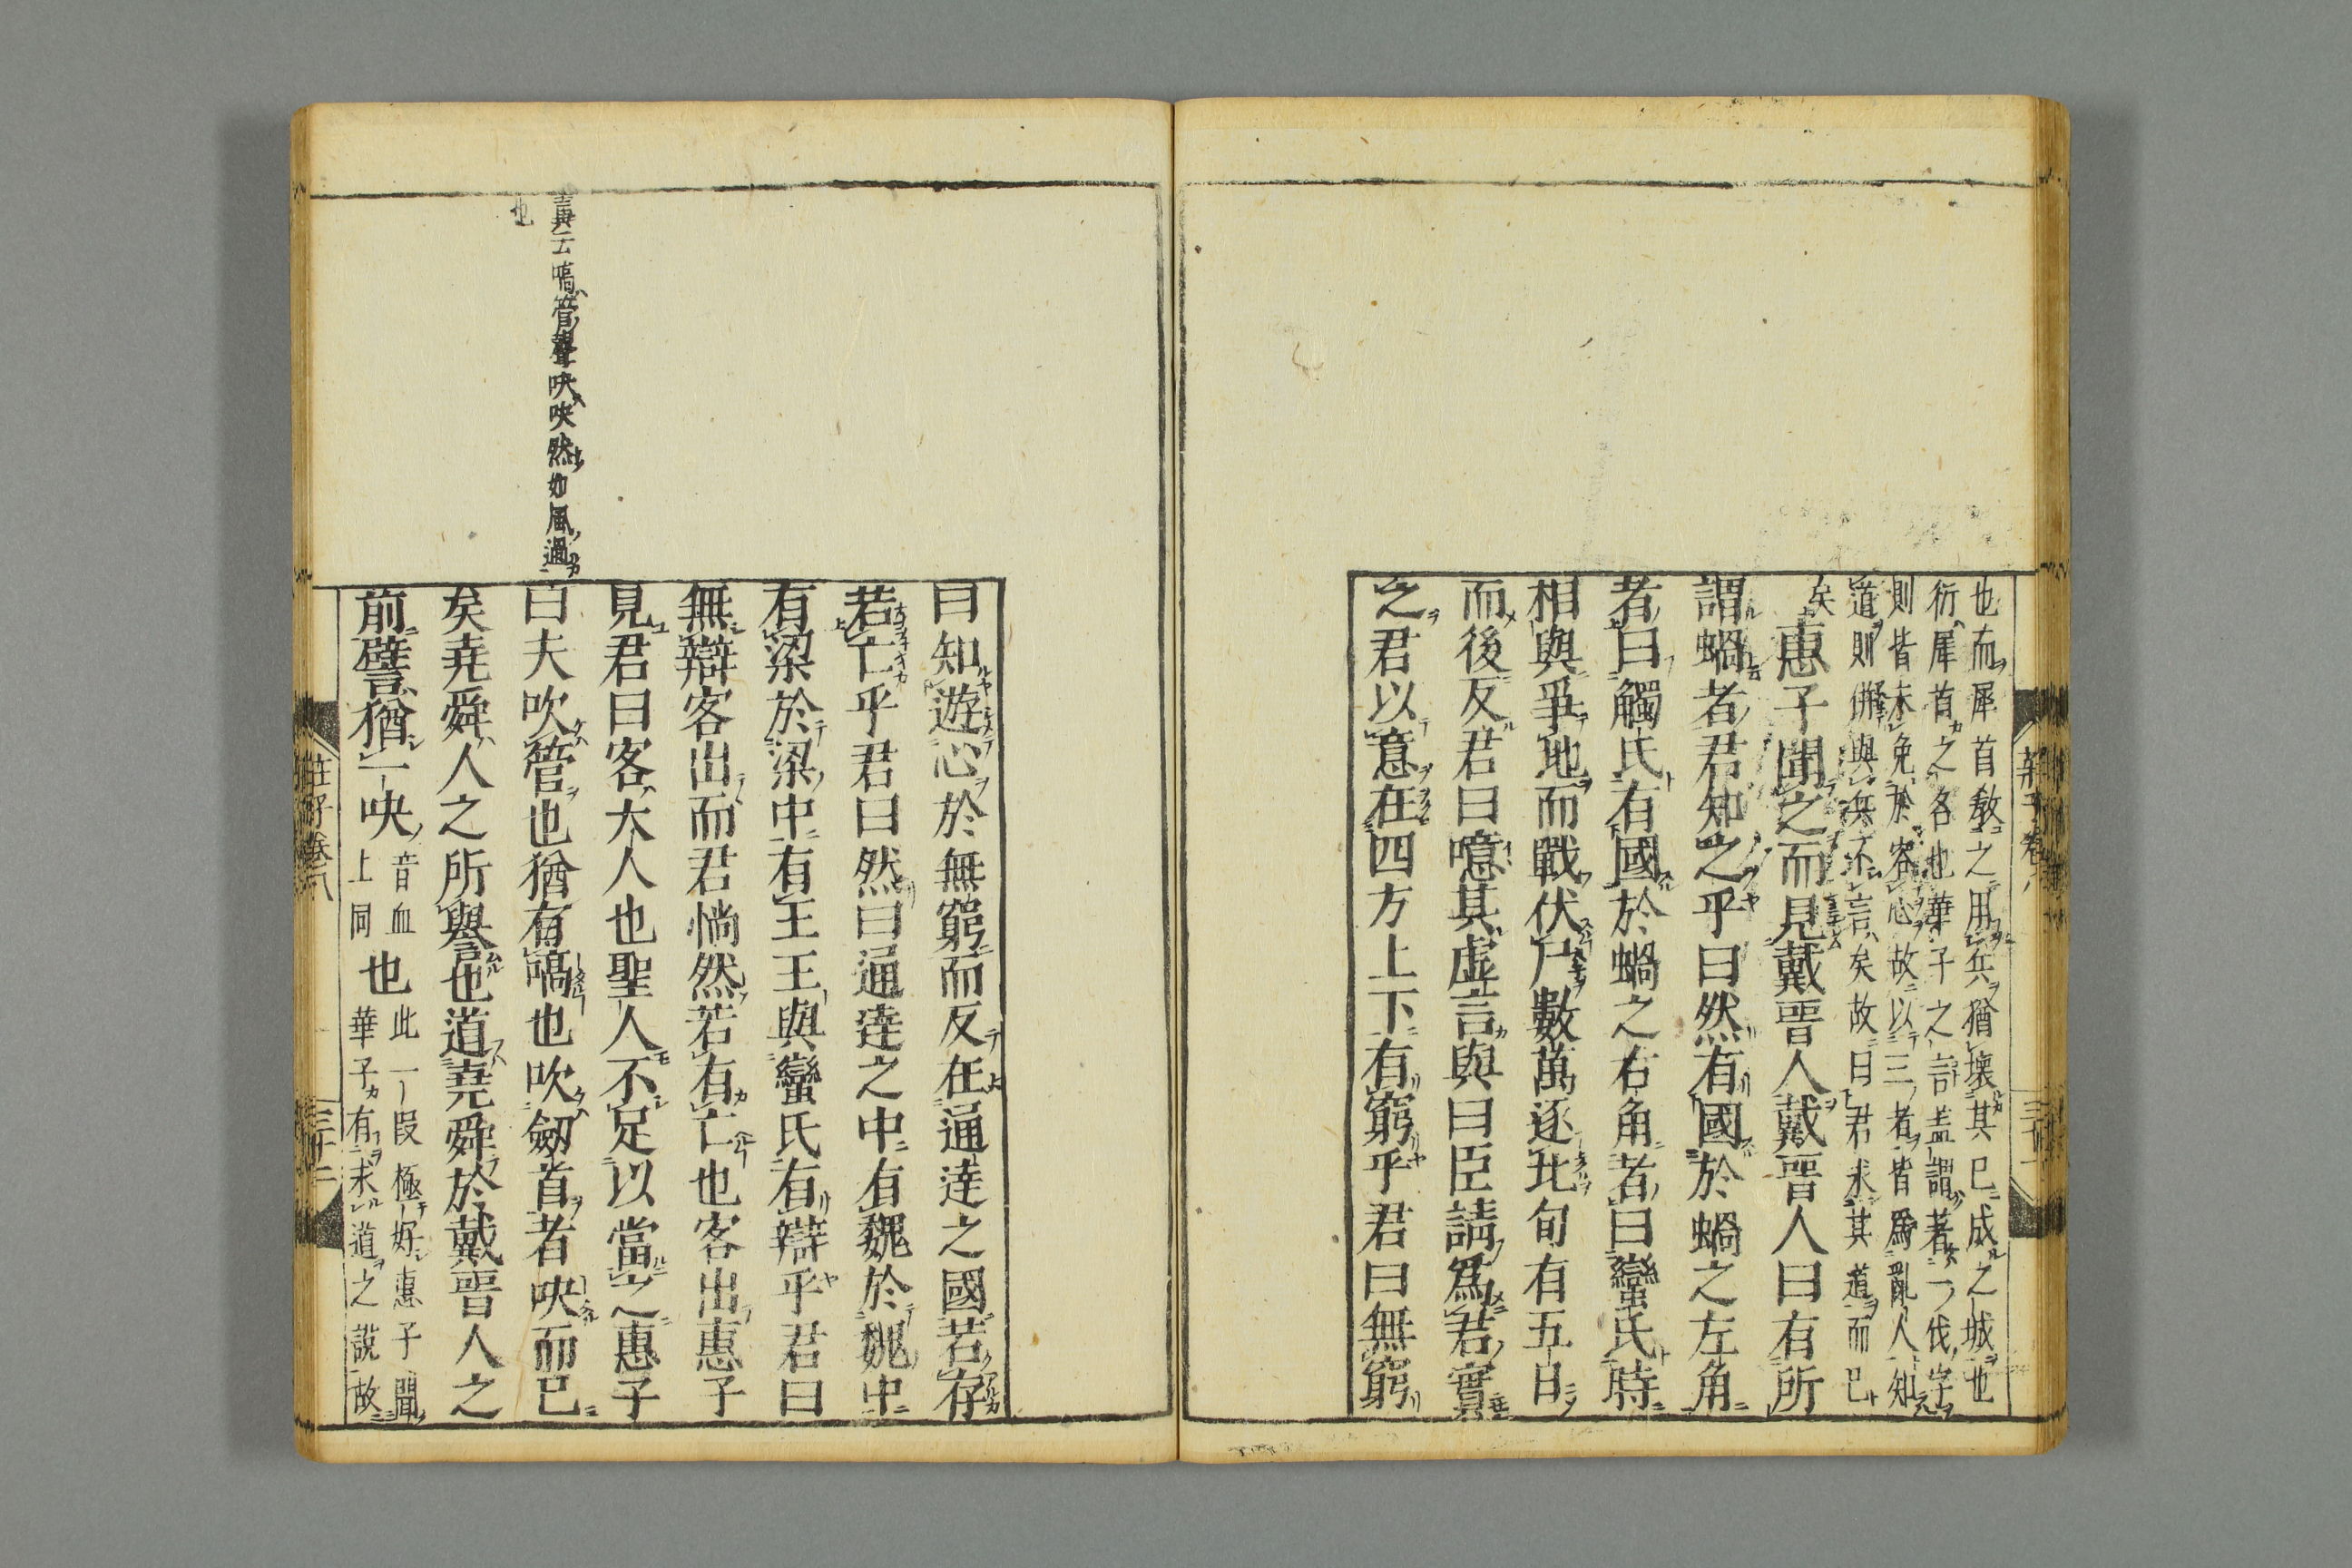 也而犀首教之用兵猶壊其已成之城也
衍犀首之名也華子之言盖謂著一伐字
則皆未免於容心故以三者皆爲亂人知
道則併與兵不言矣故曰君求其道而已
矣惠子聞之而見戴晋人戴晋人曰有所
謂蝸者君知之乎曰然有國於蝸之左角
者曰觸氏有國於蝸之右角者曰蠻氏時
相與爭地而戰伏尸數萬逐北旬有五日
而後反君曰噫其虚言與曰臣請爲君實
之君以意在四方上下有窮乎君曰無窮
莊子卷八
三十一
曰知遊心於無窮而反在通逹之國若存
若亡乎君曰然曰通逹之中有魏於魏中
有梁於梁中有王王與蠻氏有辯乎君曰
無辯客出而君惝然若有亡也客出惠子
見君曰客大人也聖人不足以當之惠子
曰夫吹管也猶有嗃也吹劒首者吷而已
矣堯舜人之所譽也道堯舜於戴晋人之
前譬猶一吷音血上同也此一段極好惠子聞華子有求道之説故
云嗃管聲吷吷然如風過
也
莊子卷八
三十二